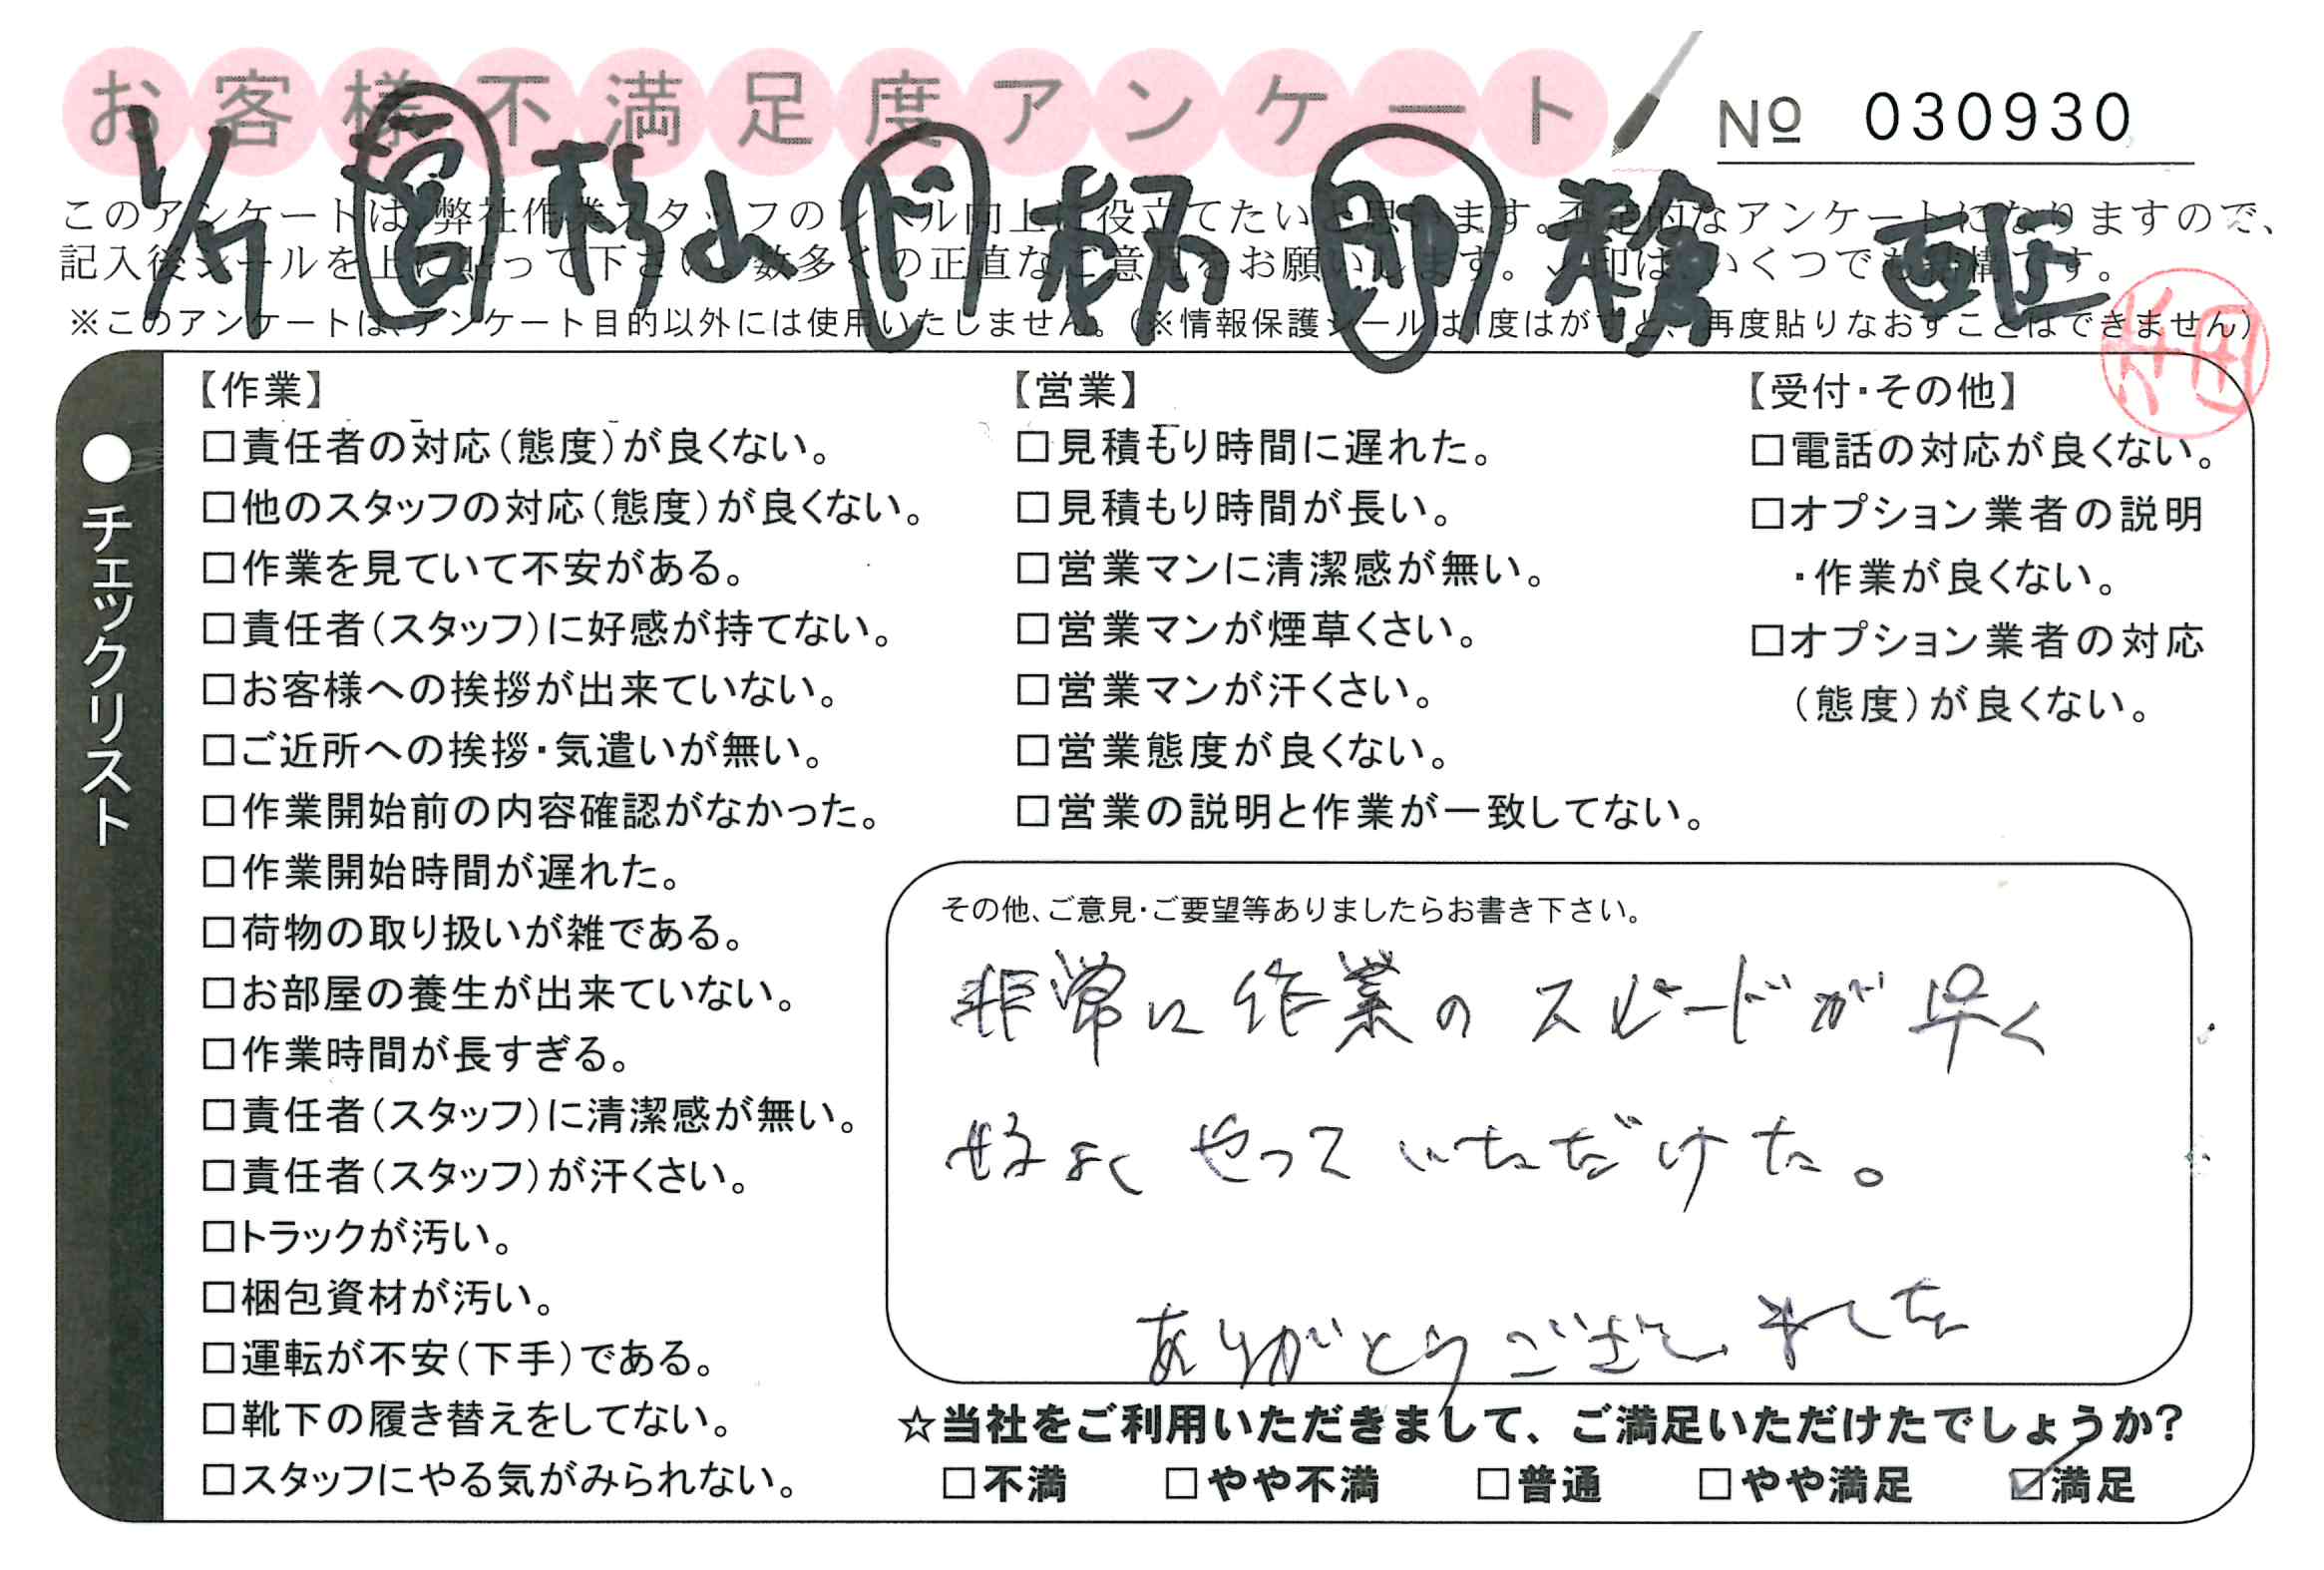 お客様不満足度アンケート
№ 030930
1/9 営 杉山 ド 柄 助
このアンケートは、弊社作業スタッフのレベル向上に役立てたいと思います。否定的なアンケートになりますので、
記入後シールを上に貼って下さい。数多くの正直なご意見をお願いします。✓印は、いくつでも結構です。
※このアンケートは、アンケート目的以外には使用いたしません。(※情報保護シールは1度はがすと、再度貼りなおすことはできません)
●チェックリスト
【作業】
□責任者の対応(態度)が良くない。
□他のスタッフの対応(態度)が良くない。
□作業を見ていて不安がある。
□責任者(スタッフ)に好感が持てない。
□お客様への挨拶が出来ていない。
□ご近所への挨拶・気遣いが無い。
□作業開始前の内容確認がなかった。
□作業開始時間が遅れた。
□荷物の取り扱いが雑である。
□お部屋の養生が出来ていない。
□作業時間が長すぎる。
□責任者(スタッフ)に清潔感が無い。
□責任者(スタッフ)が汗くさい。
□トラックが汚い。
□梱包資材が汚い。
□運転が不安(下手)である。
□靴下の履き替えをしてない。
□スタッフにやる気がみられない。
【営業】
□見積もり時間に遅れた。
□見積もり時間が長い。
□営業マンに清潔感が無い。
□営業マンが煙草くさい。
□営業マンが汗くさい。
□営業態度が良くない。
□営業の説明と作業が一致してない。
【受付・その他】
□電話の対応が良くない。
□オプション業者の説明
・作業が良くない。
□オプション業者の対応
(態度)が良くない。
その他、ご意見・ご要望等ありましたらお書き下さい。
非常に作業のスピードが早く
よく やって いただけた。
ありがとうございました
☆当社をご利用いただきまして、ご満足いただけたでしょうか?
□不満 □やや不満 □普通 □やや満足 ☑満足